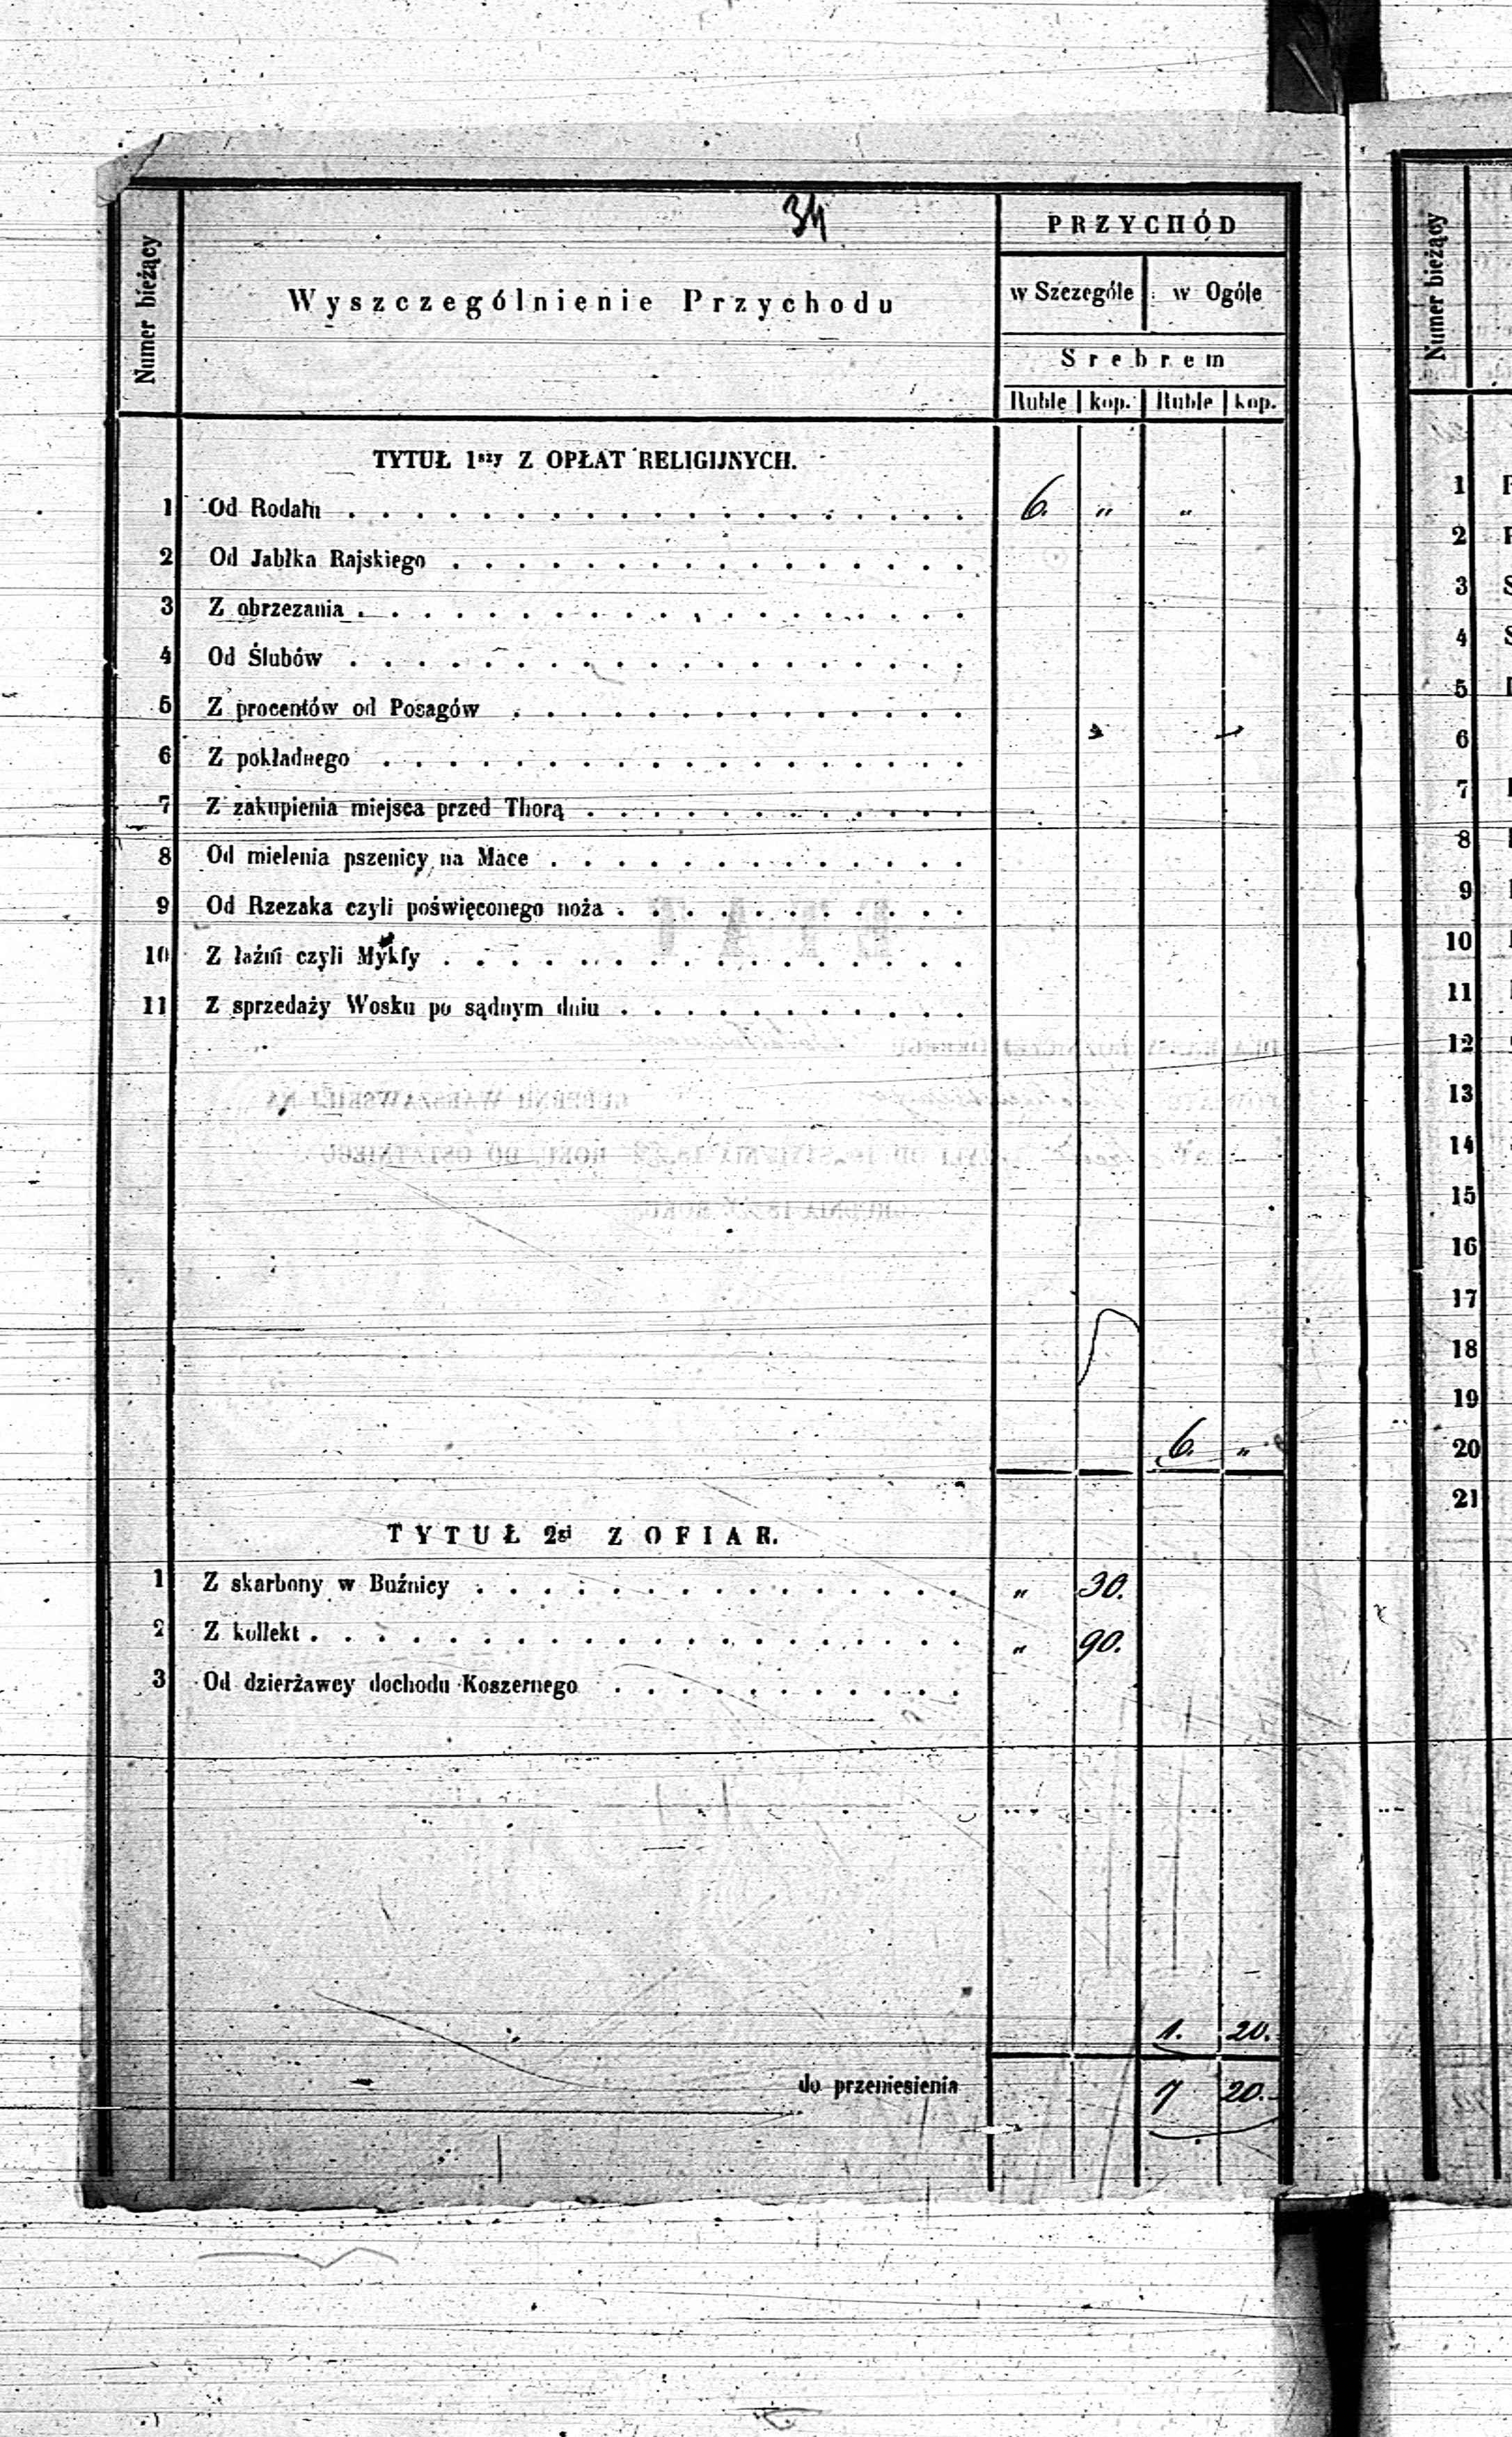 34
Numer bieżący
Wyszczególnienie Przychodu
PRZYCHÓD
w Szczególe w Ogóle
Srebrem
Ruble kop. Ruble kop.
TYTUŁ 1szy Z OPŁAT RELIGIJNYCH.
1 Od Rodału . . . . . . . . . . . . . . . . . . . 6. „ „
2 Od Jabłka Rajskiego . . . . . . . . . . . . . . . .
3 Z obrzezania . . . . . . . . . . . . . . . . . . .
4 Od Ślubów . . . . . . . . . . . . . . . . . . .
5 Z procentów od Posagów . . . . . . . . . . . . . .
6 Z pokładnego . . . . . . . . . . . . . . . . . .
7 Z zakupienia miejsca przed Thorą . . . . . . . . . . . .
8 Od mielenia pszenicy na Mace . . . . . . . . . . . . .
9 Od Rzezaka czyli poświęconego noża . . . . . . . . . . .
10 Z łaźni czyli Mykfy . . . . . . . . . . . . . . . .
11 Z sprzedaży Wosku po sądnym dniu . . . . . . . . . . .
6. „
TYTUŁ 2gi Z OFIAR.
1 Z skarbony w Buźnicy . . . . . . . . . . . . . . . „ 30.
2 Z kollekt . . . . . . . . . . . . . . . . . . . . „ 90.
3 Od dzierżawcy dochodu Koszernego . . . . . . . . . . .
1. 20.
do przeniesienia 7 20.
Numer bieżący
1
2
3
4
5
6
7
8
9
10
11
12
13
14
15
16
17
18
19
20
21